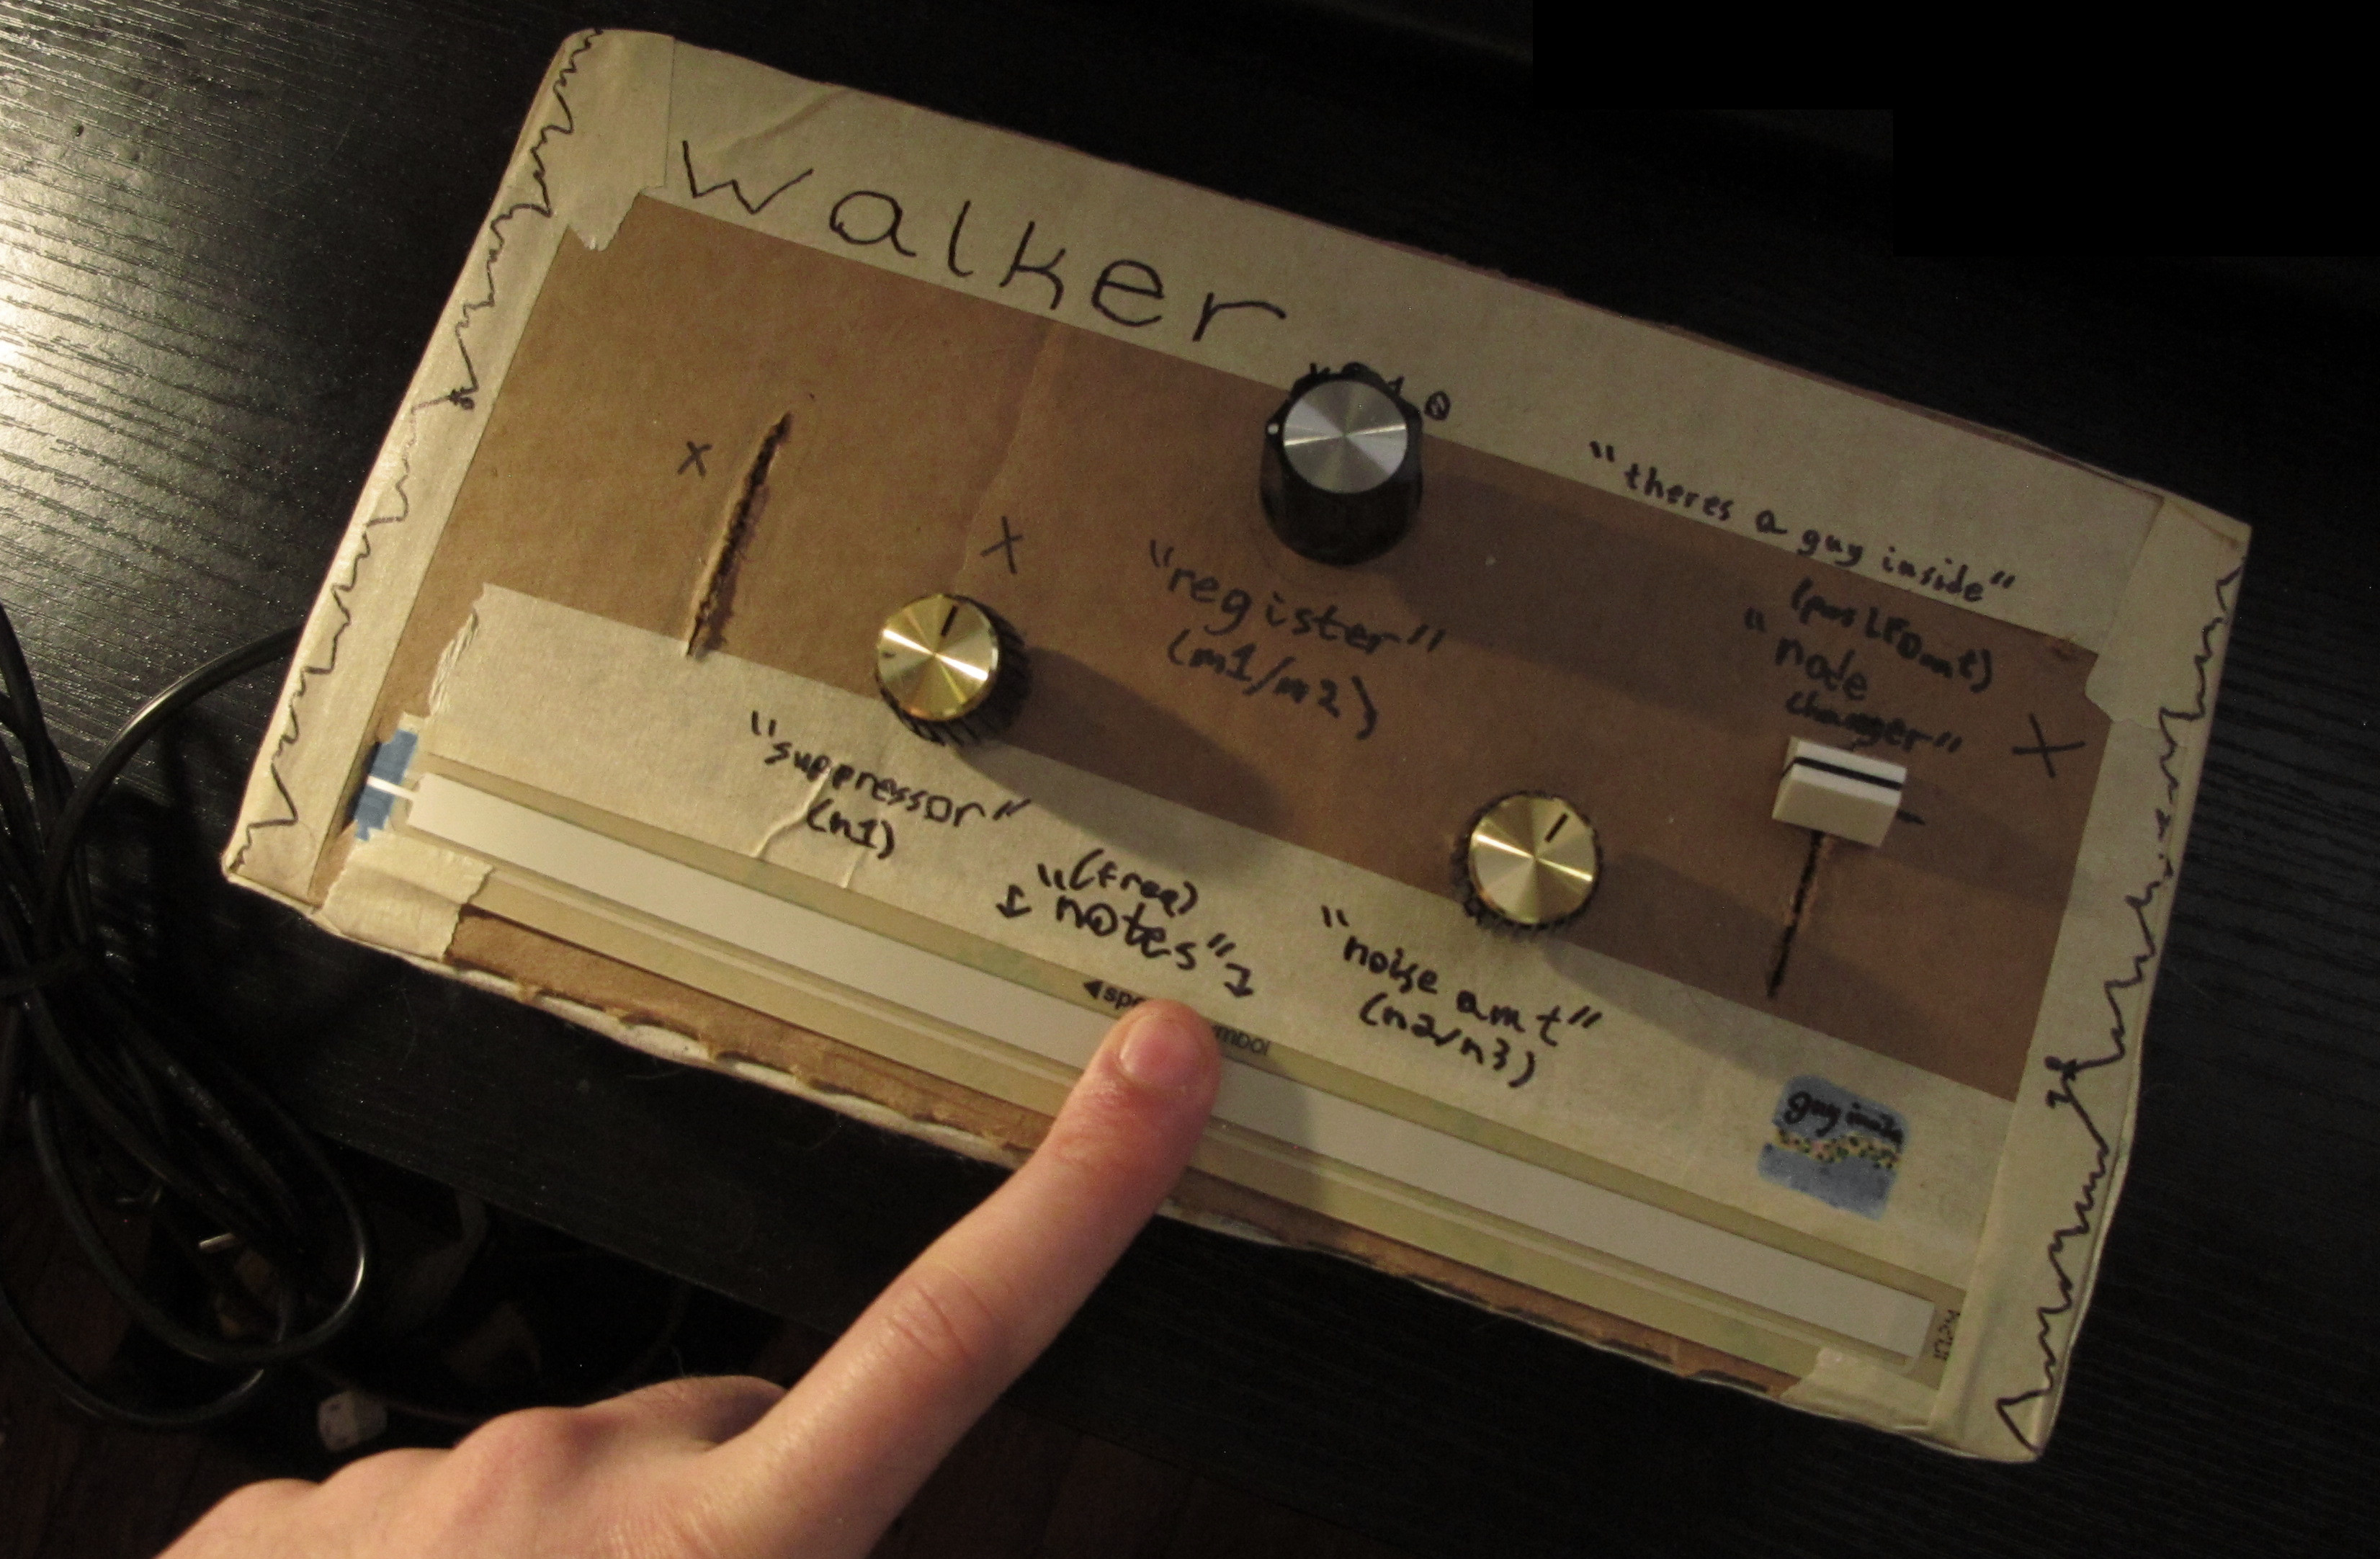 walker
"theres a guy inside"
"register"
(m1/m2)
(pos LFO amt)
"node
changer"
x
X
X
"suppressor"
(n1)
(freq)
"notes"
"noise amt"
(n2/n3)
guy inside